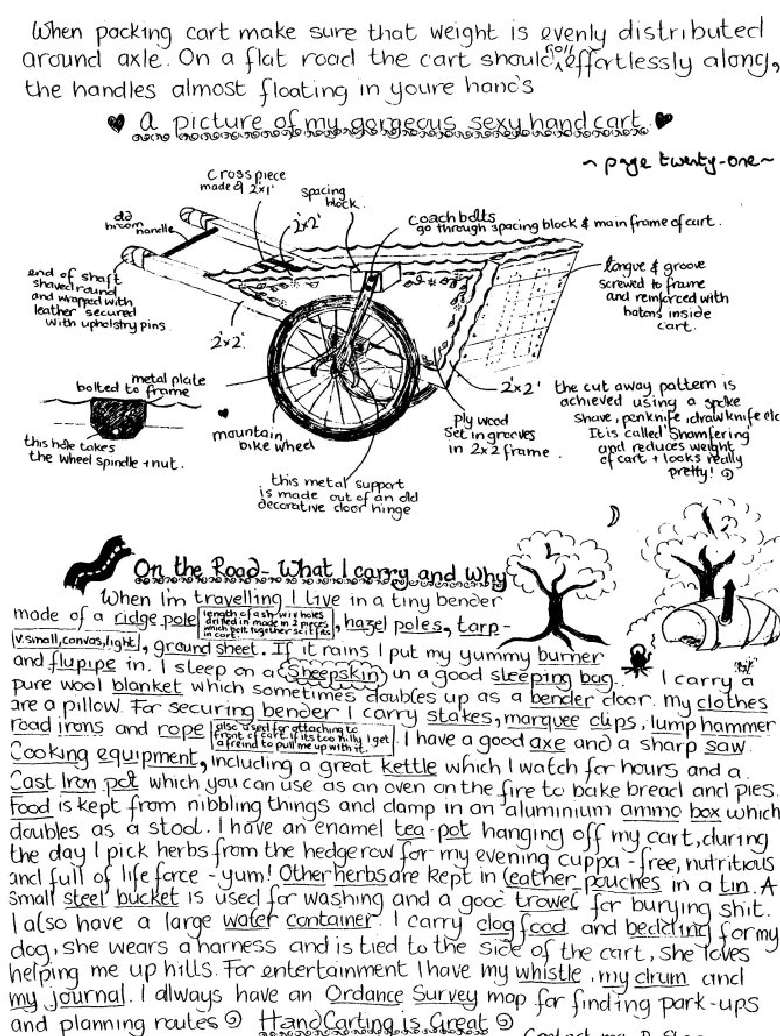 When packing cart make sure that weight is evenly distributed
around axle. On a flat road the cart should roll effortlessly along,
the handles almost floating in youre hands
♥ A picture of my gorgeous sexy hand cart ♥
~ page twenty-one ~
Crosspiece
made of 2"x1"
spacing
block.
2"x2"
Coach bolts
go through spacing block & main frame of cart.
old
broom
handle
end of shaft
shaved round
and wrapped with
leather secured
with upholstry pins.
2"x2"
tongue & groove
screwed to frame
and reinforced with
batons inside
cart.
metal plate
bolted to frame
this hole takes
the wheel spindle + nut.
mountain
bike wheel
this metal support
is made out of an old
decorative door hinge
Ply wood
set in grooves
in 2x2 frame.
2"x2"
the cut away pattern is
achieved using a spoke
shave, penknife, drawknife etc
It is called 'Shamfering'
and reduces weight
of cart + looks really
pretty! ☺
On the Road - What I carry and Why
When I'm travelling I live in a tiny bender
made of a ridge pole length of ash with holes drilled in made in 2 pieces which bolt together so it fits in cart, hazel poles, tarp-
v.small, canvas, light, ground sheet. If it rains I put my yummy burner
and flupipe in. I sleep on a Sheepskin in a good sleeping bag. I carry a
pure wool blanket which sometimes doubles up as a bender door. my clothes
are a pillow. For securing bender I carry stakes, marquee clips, lump hammer
road irons and rope also used for attaching to front of cart. If its too hilly I get a freind to pull me up with it. I have a good axe and a sharp saw.
Cooking equipment, including a great kettle which I watch for hours and a
Cast Iron pot which you can use as an oven on the fire to bake bread and pies.
Food is kept from nibbling things and damp in an aluminium ammo box which
doubles as a stool. I have an enamel tea-pot hanging off my cart, during
the day I pick herbs from the hedgerow for my evening cuppa - free, nutritious
and full of life force - yum! Other herbs are kept in leather pouches in a tin. A
small steel bucket is used for washing and a good trowel for burying shit.
I also have a large water container. I carry dog food and bedding for my
dog, she wears a harness and is tied to the side of the cart, she loves
helping me up hills. For entertainment I have my whistle, my drum and
my journal. I always have an Ordance Survey map for finding park-ups
and planning routes ☺ HandCarting is Great ☺